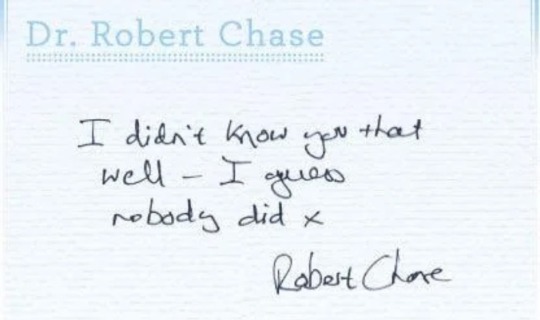 Dr. Robert Chase
I didn't know you that
well – I guess
nobody did x
Robert Chase